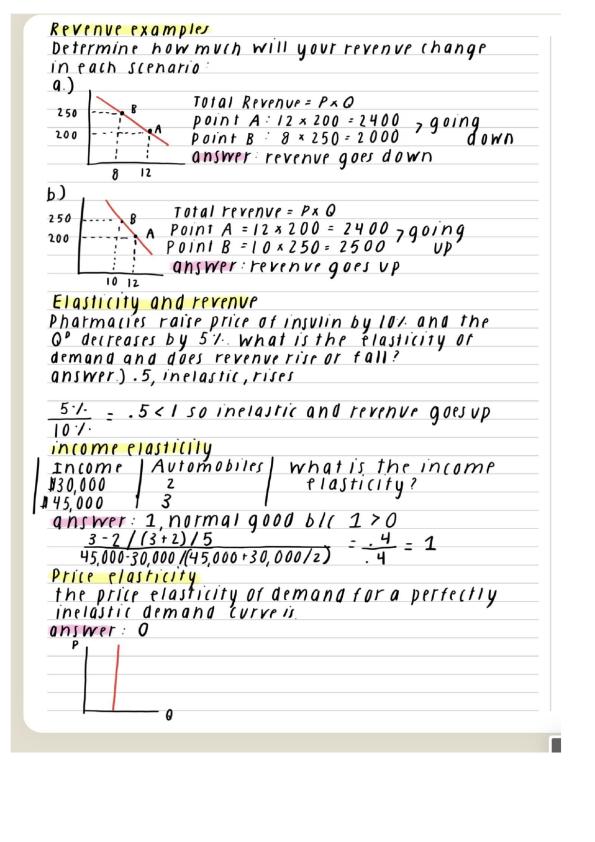 Revenue examples
Determine how much will your revenue change
in each scenario:
a.)
250
200
B
A
8 12
Total Revenue = P x Q
point A: 12 x 200 = 2400 > going down
Point B : 8 x 250 = 2000
answer: revenue goes down
b)
250
200
B
A
10 12
Total revenue = P x Q
Point A = 12 x 200 = 2400 > going up
Point B = 10 x 250 = 2500
answer: revenue goes up
Elasticity and revenue
Pharmacies raise price of insulin by 10% and the
Qᴰ decreases by 5%. what is the elasticity of
demand and does revenue rise or fall?
answer.) .5, inelastic, rises
5% / 10% = .5 < 1 so inelastic and revenue goes up
income elasticity
Income Automobiles what is the income
$30,000 2 elasticity?
$45,000 3
answer: 1, normal good b/c 1 > 0
3-2/(3+2)/5 = .4 = 1
45,000-30,000/(45,000+30,000/2) .4
Price elasticity
the price elasticity of demand for a perfectly
inelastic demand curve is
answer: 0
P
Q